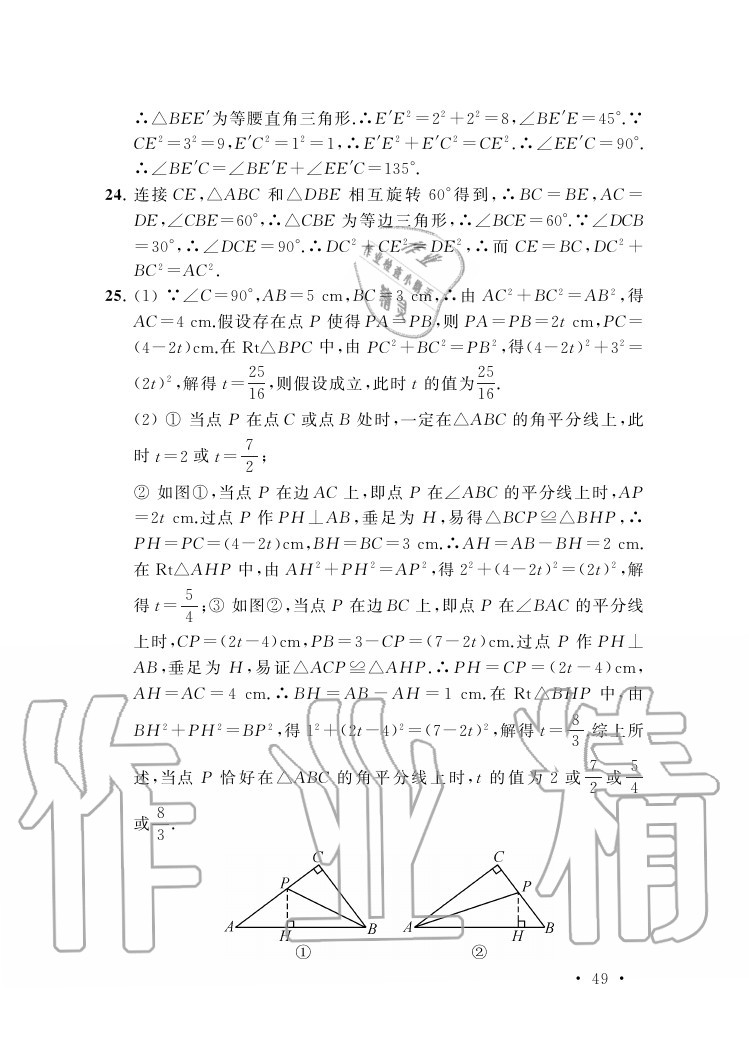 ∴△BEE′为等腰直角三角形.∴E′E²=2²+2²=8,∠BE′E=45°.∵
CE²=3²=9,E′C²=1²=1,∴E′E²+E′C²=CE².∴∠EE′C=90°.
∴∠BE′C=∠BE′E+∠EE′C=135°.
24. 连接 CE,△ABC 和△DBE 相互旋转 60°得到,∴BC=BE,AC=
DE,∠CBE=60°,∴△CBE 为等边三角形,∴∠BCE=60°.∵∠DCB
=30°,∴∠DCE=90°.∴DC²+CE²=DE²,∴而 CE=BC,DC²+
BC²=AC².
25. (1) ∵∠C=90°,AB=5 cm,BC=3 cm,∴由 AC²+BC²=AB²,得
AC=4 cm.假设存在点 P 使得PA=PB,则 PA=PB=2t cm,PC=
(4-2t)cm.在 Rt△BPC 中,由 PC²+BC²=PB²,得(4-2t)²+3²=
(2t)²,解得 t=25/16,则假设成立,此时 t 的值为25/16.
(2) ① 当点 P 在点C 或点 B 处时,一定在△ABC 的角平分线上,此
时 t=2 或 t=7/2;
② 如图①,当点 P 在边 AC 上,即点 P 在∠ABC 的平分线上时,AP
=2t cm.过点 P 作 PH⊥AB,垂足为 H,易得△BCP≌△BHP,∴
PH=PC=(4-2t)cm,BH=BC=3 cm.∴AH=AB-BH=2 cm.
在 Rt△AHP 中,由 AH²+PH²=AP²,得 2²+(4-2t)²=(2t)²,解
得 t=5/4;③ 如图②,当点 P 在边BC 上,即点 P 在∠BAC 的平分线
上时,CP=(2t-4)cm,PB=3-CP=(7-2t)cm.过点 P 作 PH⊥
AB,垂足为 H,易证△ACP≌△AHP.∴PH=CP=(2t-4)cm,
AH=AC=4 cm.∴BH=AB-AH=1 cm.在 Rt△BHP 中,由
BH²+PH²=BP²,得 1²+(2t-4)²=(7-2t)²,解得 t=8/3.综上所
述,当点 P 恰好在△ABC 的角平分线上时,t 的值为 2 或7/2或5/4
或8/3.
C
P
A H B
①
C
P
A H B
②
· 49 ·
作业精
作业
作业检查小帮手
精灵